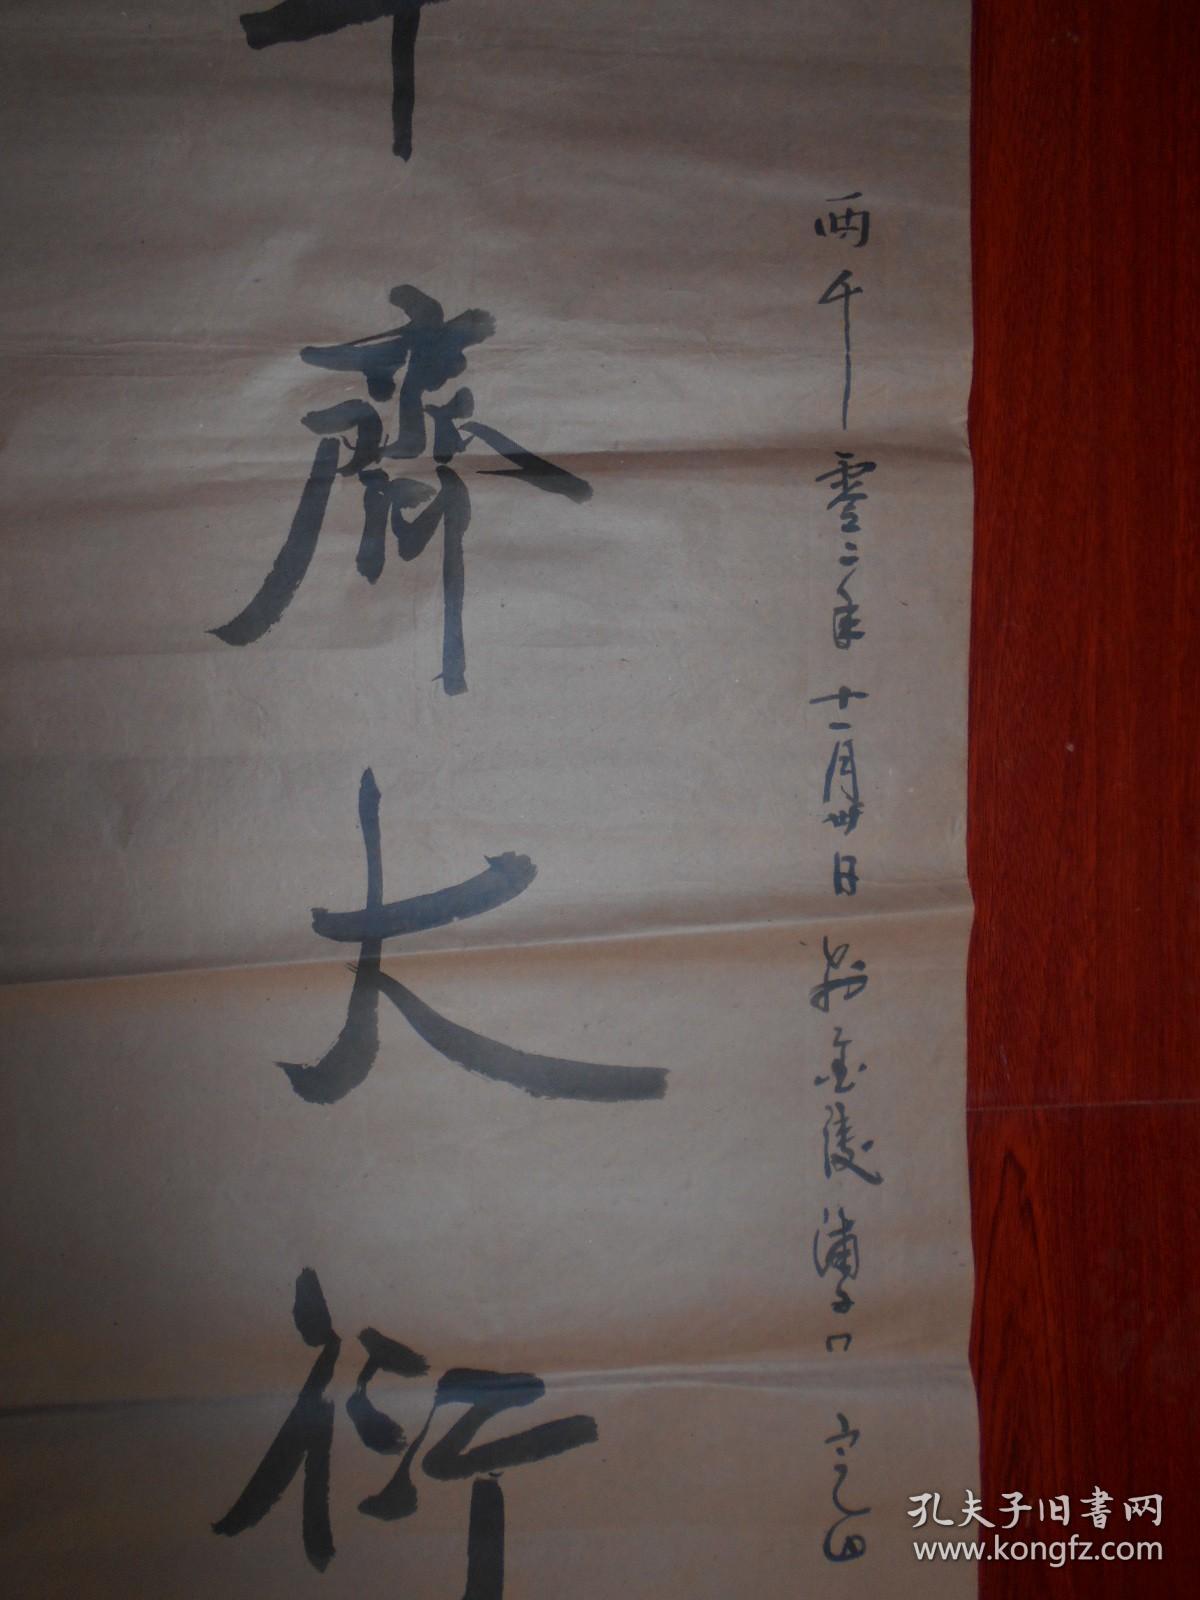 两千零二年十一月卅日 于金陵浦子口
齊大衍
孔夫子旧書网
www.kongfz.com